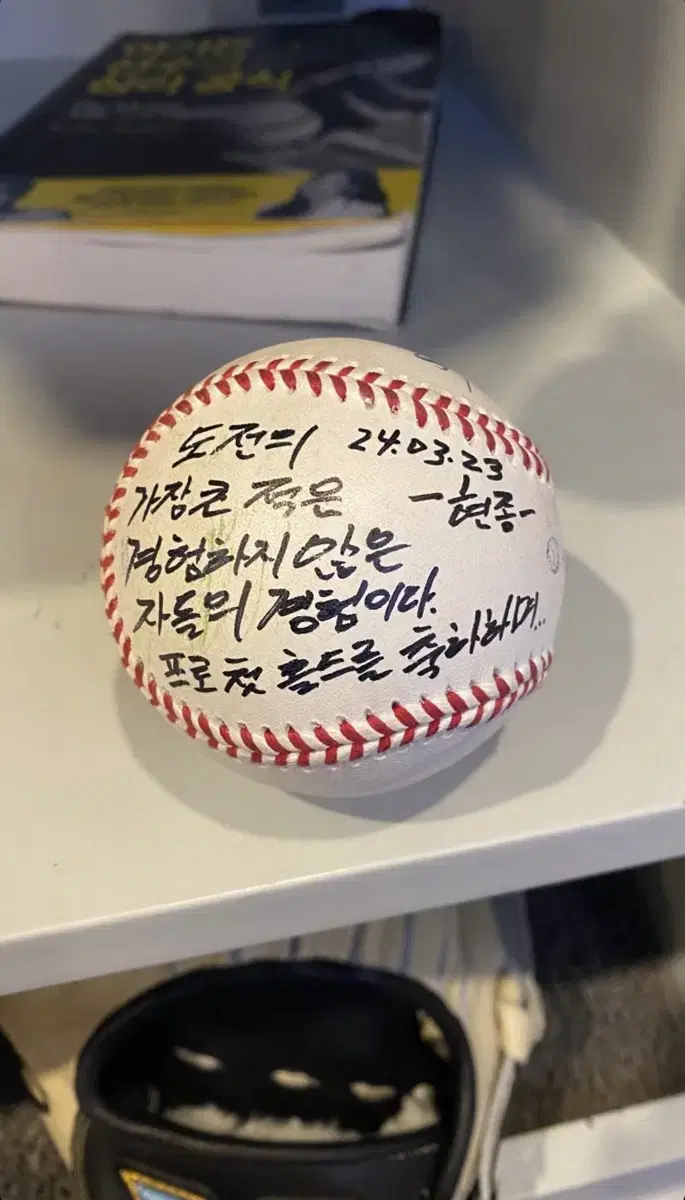 도전의
24.03.23
가장큰 적은
-현종-
경험하지 않은
자들의 경험이다.
프로 첫 홀드를 축하하며..